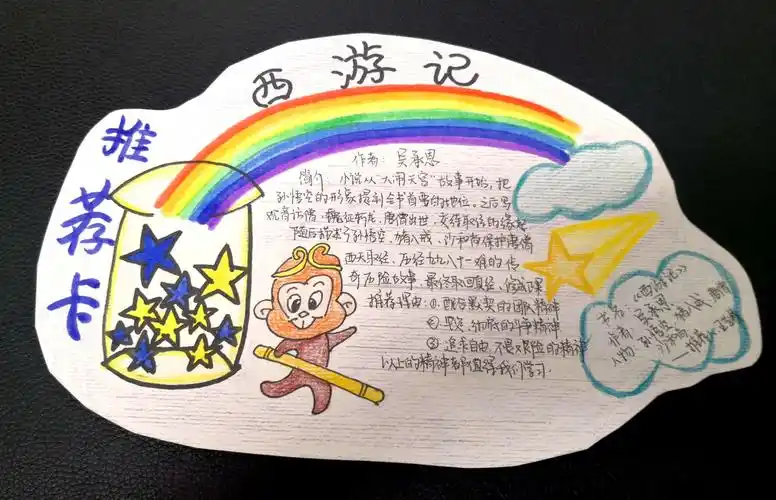 西游记
推荐卡
作者：吴承恩
简介：小说从"大闹天宫"故事开始，把
孙悟空的形象提到全书首要的地位，之后写
观音访僧，魏征斩龙，唐僧出世，交待取经的缘起
随后描述了孙悟空，猪八戒，沙和尚保护唐僧
西天取经，历经九九八十一难的传
奇历险故事，最终取回真经，
推荐理由：① 默契的团队精神
② 的斗争精神
③ 追求自由，不畏艰险的精神
以上的精神都值得我们学习.
书名：《西游记》
作者：吴承恩
人物：孙悟空 猪八戒 唐僧
沙和尚